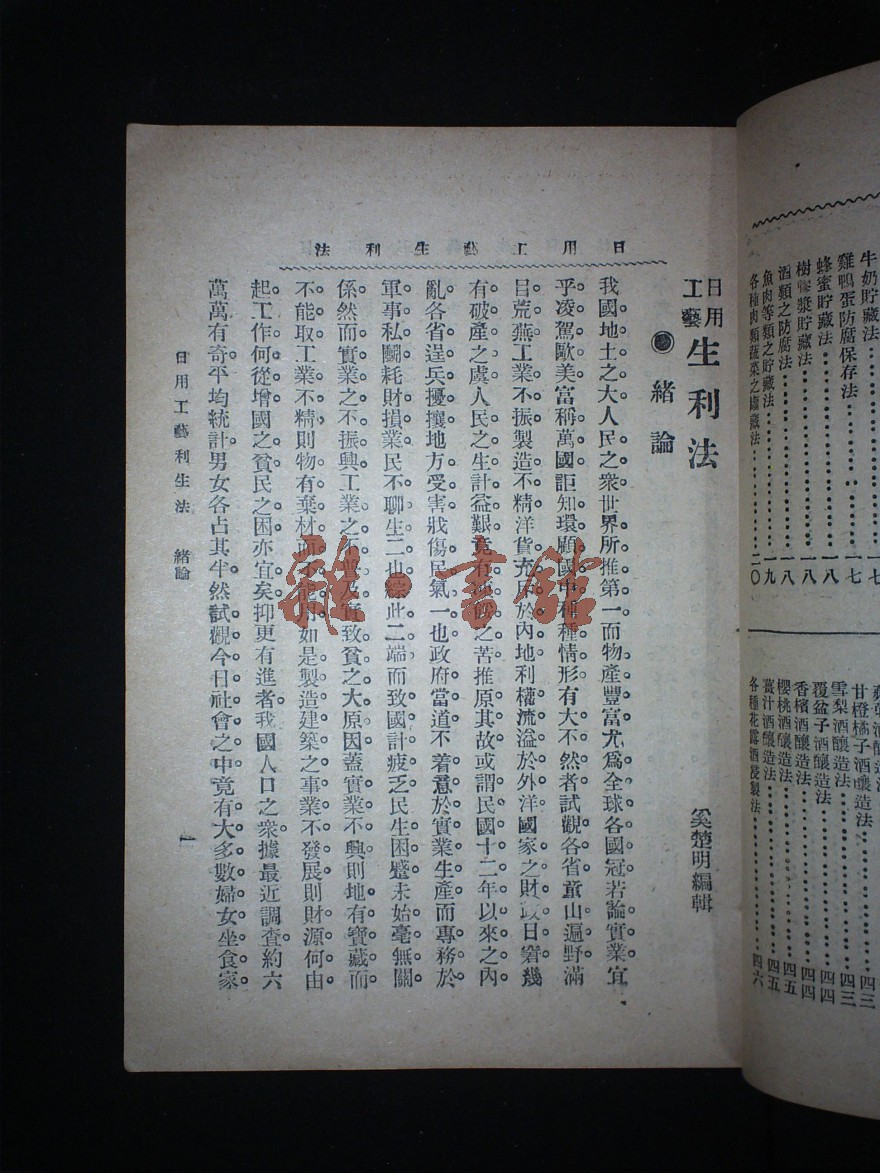 牛奶貯藏法……一七
雞鴨蛋防腐保存法……一七
蜂蜜貯藏法……一八
樹漿貯藏法……一八
酒類之防腐法……一八
魚肉等類之貯藏法……一九
各種肉類蔬菜之罐藏法……二〇
甘橙橘子酒釀造法……四三
雪梨酒釀造法……四三
覆盆子酒釀造法……四四
香檳酒釀造法……四四
櫻桃酒釀造法……四五
薑汁酒釀造法……四五
各種花露酒浸製法……四六
日用工藝生利法
日用工藝生利法
緒論
奚楚明編輯
我國地土之大。人民之衆。世界所推第一。而物產豐富。尤爲全球各國冠。若論實業。宜
乎凌駕歐美。富稱萬國。詎知環顧國中。種種情形。有大不然者。試觀各省。童山遍野。滿
目荒蕪。工業不振。製造不精。洋貨充斥於內地。利權流溢於外洋。國家之財政日窘。幾
有破產之虞。人民之生計益艱。竟有之苦。推原其故。或謂民國十二年以來之內
亂。各省逞兵。擾攘地方。受害戕傷民氣一也。政府當道。不着意於實業生產。而專務於
軍事私鬭。耗財損業。民不聊生二也。綜此二端。而致國計疲乏。民生困蹙。未始毫無關
係。然而實業之不振興。工業之不普及。實致貧之大原因。蓋實業不興。則地有寶藏而
不能取。工業不精。則物有棄材而不能用。如是製造建築之事業不發展。則財源何由
起。工作何從增。國之貧。民之困。亦宜矣。抑更有進者。我國人口之衆。據最近調查。約六
萬萬有奇。平均統計。男女各占其半。然試觀今日社會之中。竟有大多數婦女。坐食家
日用工藝利生法　緒論
一
雜·書館